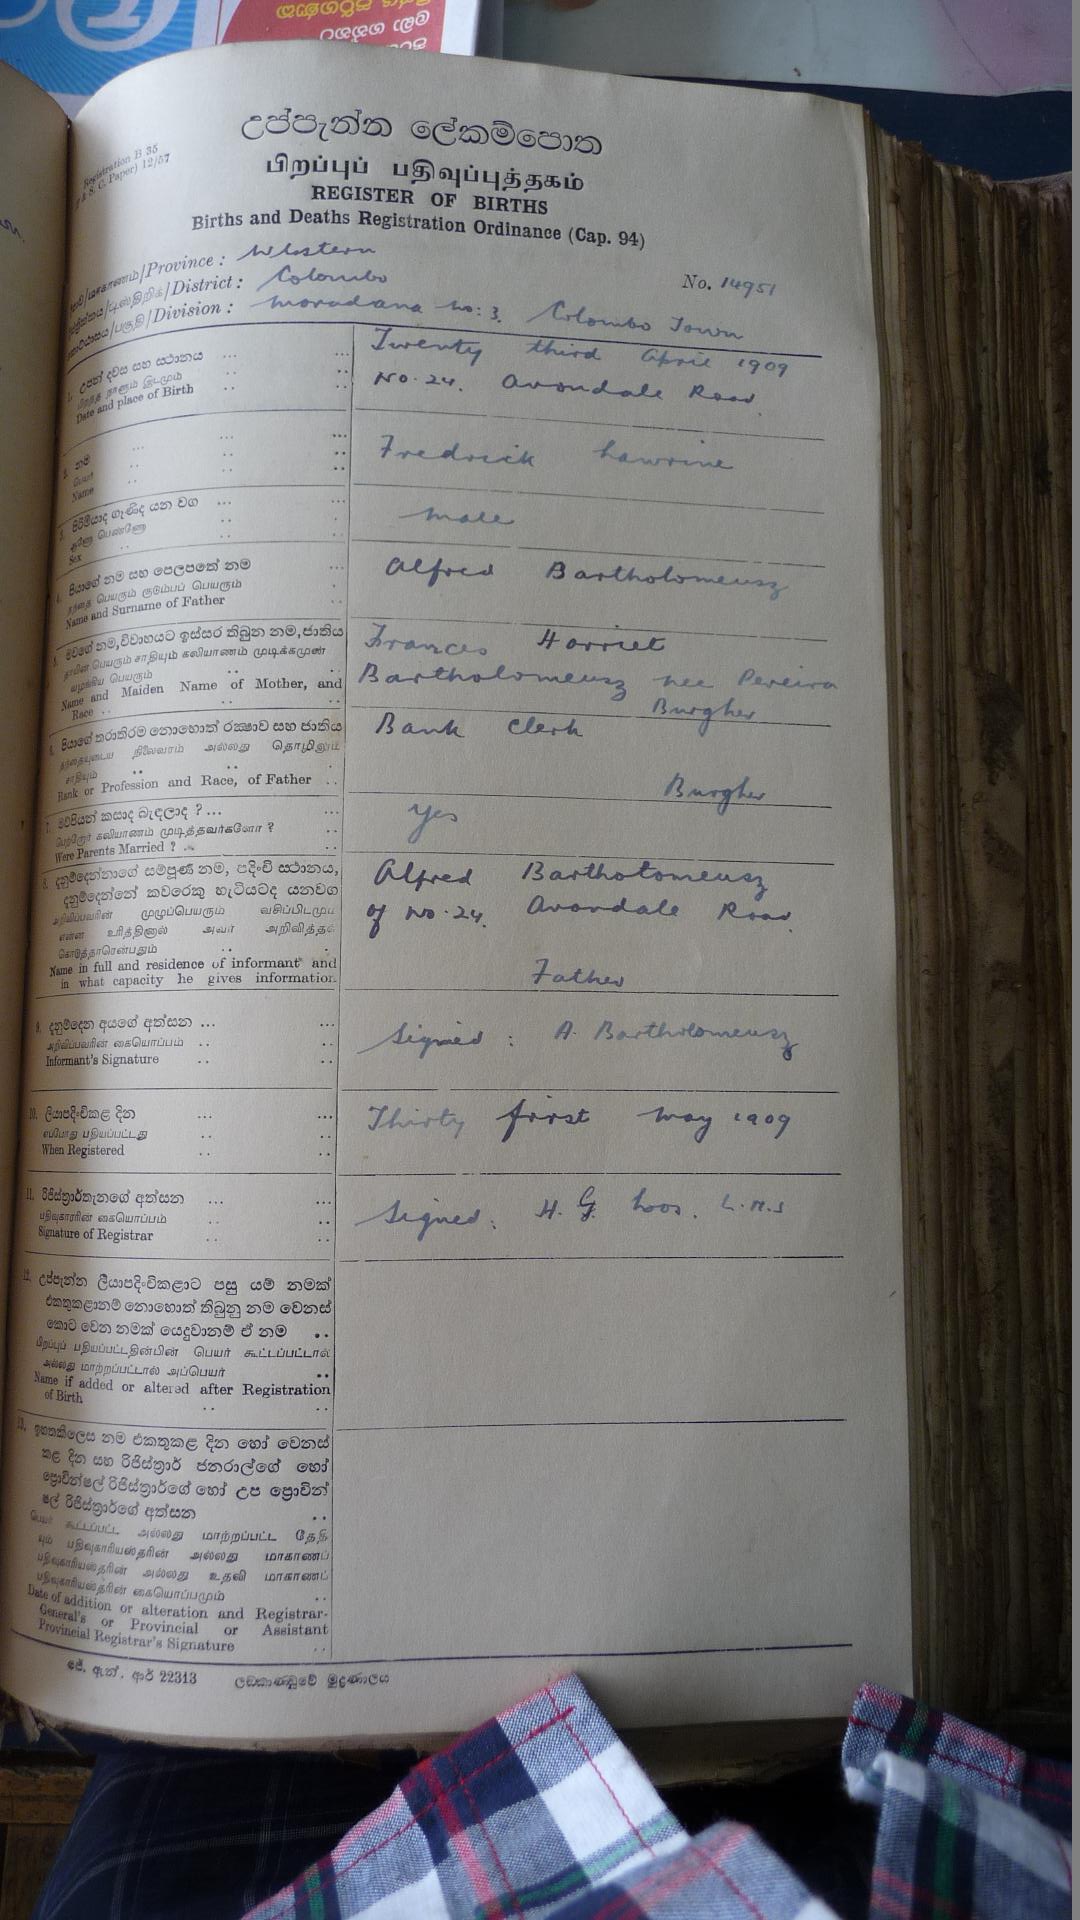 Registration B 35
& S. C. Paper) 12/57
උප්පැන්න ලේකම්පොත
பிறப்புப் பதிவுப்புத்தகம்
REGISTER OF BIRTHS
Births and Deaths Registration Ordinance (Cap. 94)
/Province : Western
/District : Colombo
No. 14951
/Division : Maradana No: 3. Colombo Town
1. උපන් දවස සහ ස්ථානය
பிறந்த நாளும் இடமும்
Date and place of Birth
Twenty third April 1909
No. 24. Avondale Road.
2. නම
பெயர்
Name
Fredrick Lawrine
3. පිරිමියාද ගැණිද යන වග
ஆணோ பெண்ணோ
Sex
Male
4. පියාගේ නම සහ පෙලපතේ නම
தந்தை பெயரும் குடும்பப் பெயரும்
Name and Surname of Father
Alfred Bartholomeusz
5. මවගේ නම, විවාහයට ඉස්සර තිබුන නම, ජාතිය
தாயின் பெயரும் சாதியும் கலியாணம் முடிக்கமுன்
வழங்கிய பெயரும்
Name and Maiden Name of Mother, and
Race
Frances Harriet
Bartholomeusz nee Pereira
Burgher
6. පියාගේ තරාතිරම නොහොත් රක්ෂාව සහ ජාතිය
தந்தையுடைய நிலைவரம் அல்லது தொழிலும்
சாதியும்
Rank or Profession and Race, of Father
Bank Clerk
Burgher
7. මව්පියන් කසාද බැඳලාද ?
பெற்றோர் கலியாணம் முடித்தவர்களோ ?
Were Parents Married ?
Yes
8. දනුම්දෙන්නාගේ සම්පූර්ණ නම, පදිංචි ස්ථානය,
දනුම්දෙන්නේ කවරෙකු හැටියටද යනවග
அறிவிப்பவரின் முழுப்பெயரும் வசிப்பிடமும்
என்ன உரித்தினால் அவர் அறிவித்தல்
கொடுத்தாரென்பதும்
Name in full and residence of informant and
in what capacity he gives information
Alfred Bartholomeusz
of No. 24. Avondale Road.
Father
9. දනුම්දෙන අයගේ අත්සන
அறிவிப்பவரின் கையொப்பம்
Informant's Signature
Signed : A. Bartholomeusz
10. ලියාපදිංචිකළ දින
எப்போது பதியப்பட்டது
When Registered
Thirty first May 1909
11. රිජිස්ත්‍රාර්තැනගේ අත්සන
பதிவுகாரரின் கையொப்பம்
Signature of Registrar
Signed : H. G. Loos. L.M.S
12. උප්පැන්න ලියාපදිංචිකළාට පසු යම් නමක්
එකතුකළානම් නොහොත් තිබුනු නම වෙනස්
කොට වෙන නමක් යෙදුවානම් ඒ නම
பிறப்புப் பதியப்பட்டதின்பின் பெயர் கூட்டப்பட்டால்
அல்லது மாற்றப்பட்டால் அப்பெயர்
Name if added or altered after Registration
of Birth
13. ඉහතකිලෙස නම එකතුකළ දින හෝ වෙනස්
කළ දින සහ රිජිස්ත්‍රාර් ජනරාල්ගේ හෝ
ප්‍රොවින්ෂල් රිජිස්ත්‍රාර්ගේ හෝ උප ප්‍රොවින්
ෂල් රිජිස්ත්‍රාර්ගේ අත්සන
பெயர் கூட்டப்பட்ட அல்லது மாற்றப்பட்ட தேதி
யும் பதிவுகாரியஸ்தரின் அல்லது மாகாணப்
பதிவுகாரியஸ்தரின் அல்லது உதவி மாகாணப்
பதிவுகாரியஸ்தரின் கையொப்பமும்
Date of addition or alteration and Registrar-
General's or Provincial or Assistant
Provincial Registrar's Signature
ජේ. ඇන්. ආර් 22313 ලංකාණ්ඩුවේ මුද්‍රණාලය